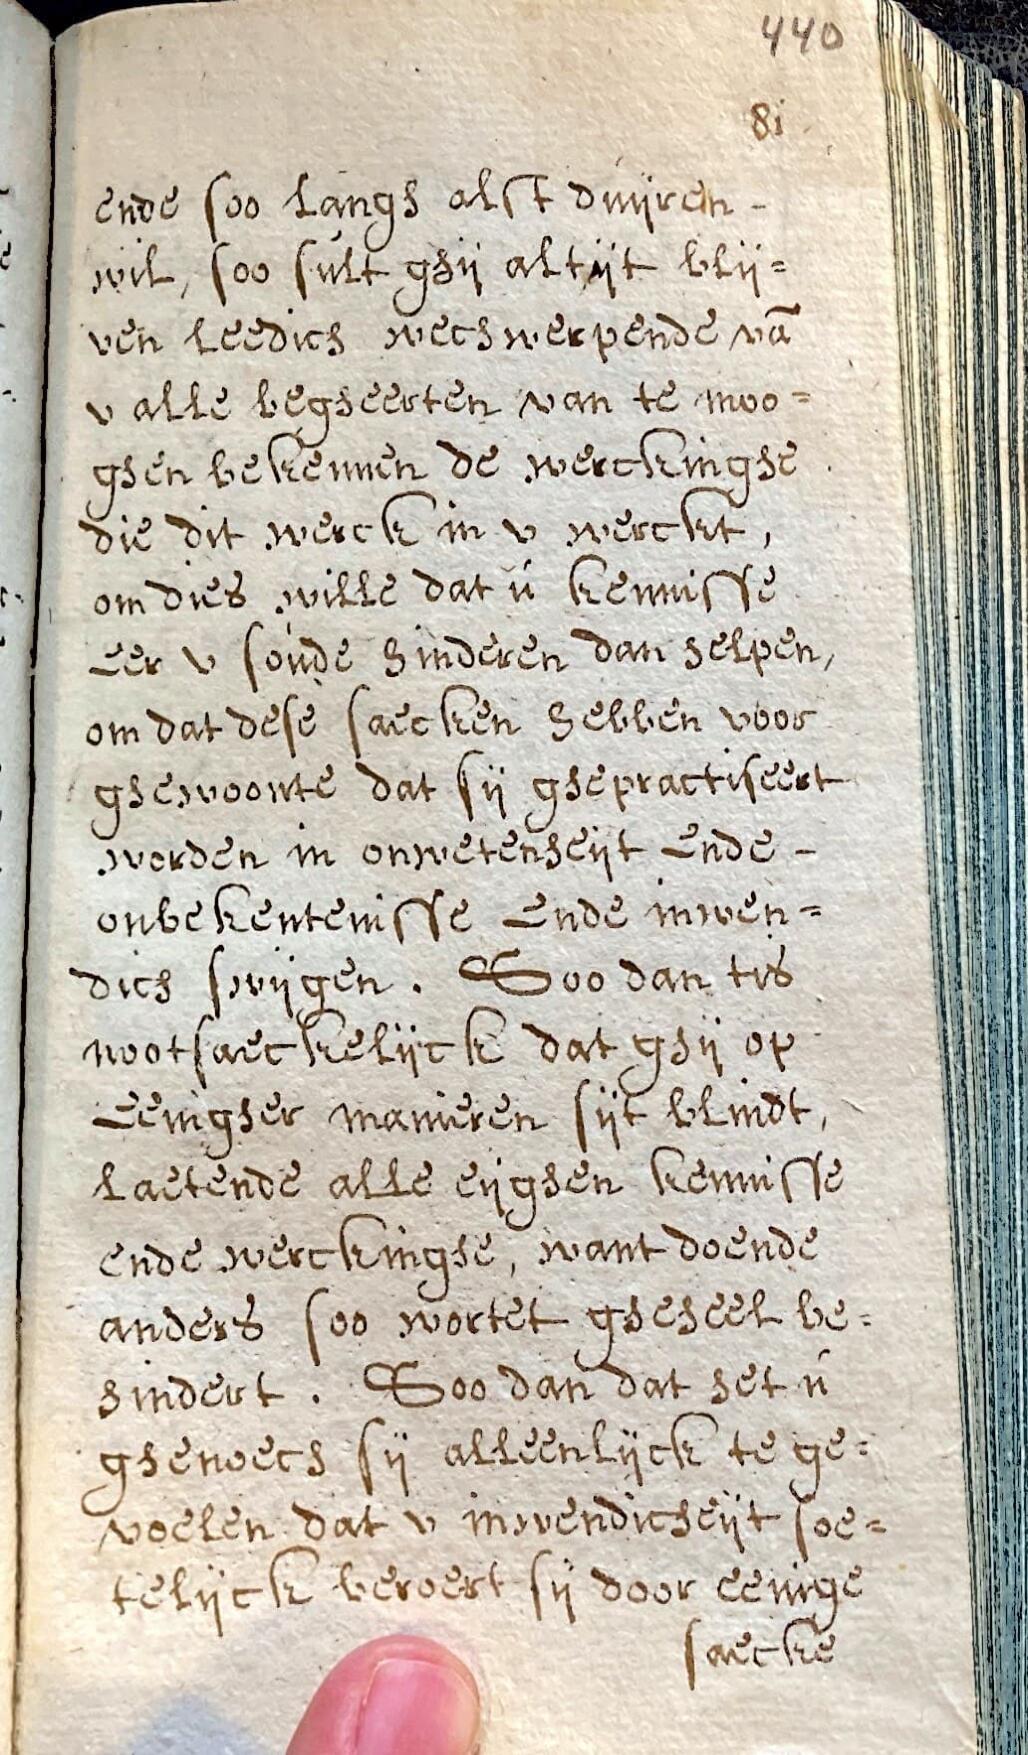 440
81
ende soo langh alst duijren -
wil, soo sult ghij altijt blij=
ven leedich wechwerpende vā
v alle begheerten van te moo=
ghen bekennen de werckinghe
die dit werck in v werckt,
om dies wille dat ú kennisse
eer v soude hinderen dan helpen,
om dat dese saecken hebben voor
ghewoonte dat sij ghepractiseert
worden in onwetenheijt ende -
onbekentenisse ende inwen=
dich swijgen. Soo dan tis
nootsaeckelijck dat ghij op
eenigher manieren sijt blindt,
laetende alle eijghen kennisse
ende werckinghe, want doende
anders soo wortet gheheel be=
hindert. Soo dan dat het ú
ghenoech sij alleenlijck te ge=
voelen dat v inwendicheijt soe=
telijck beroert sij door eenige
saecke